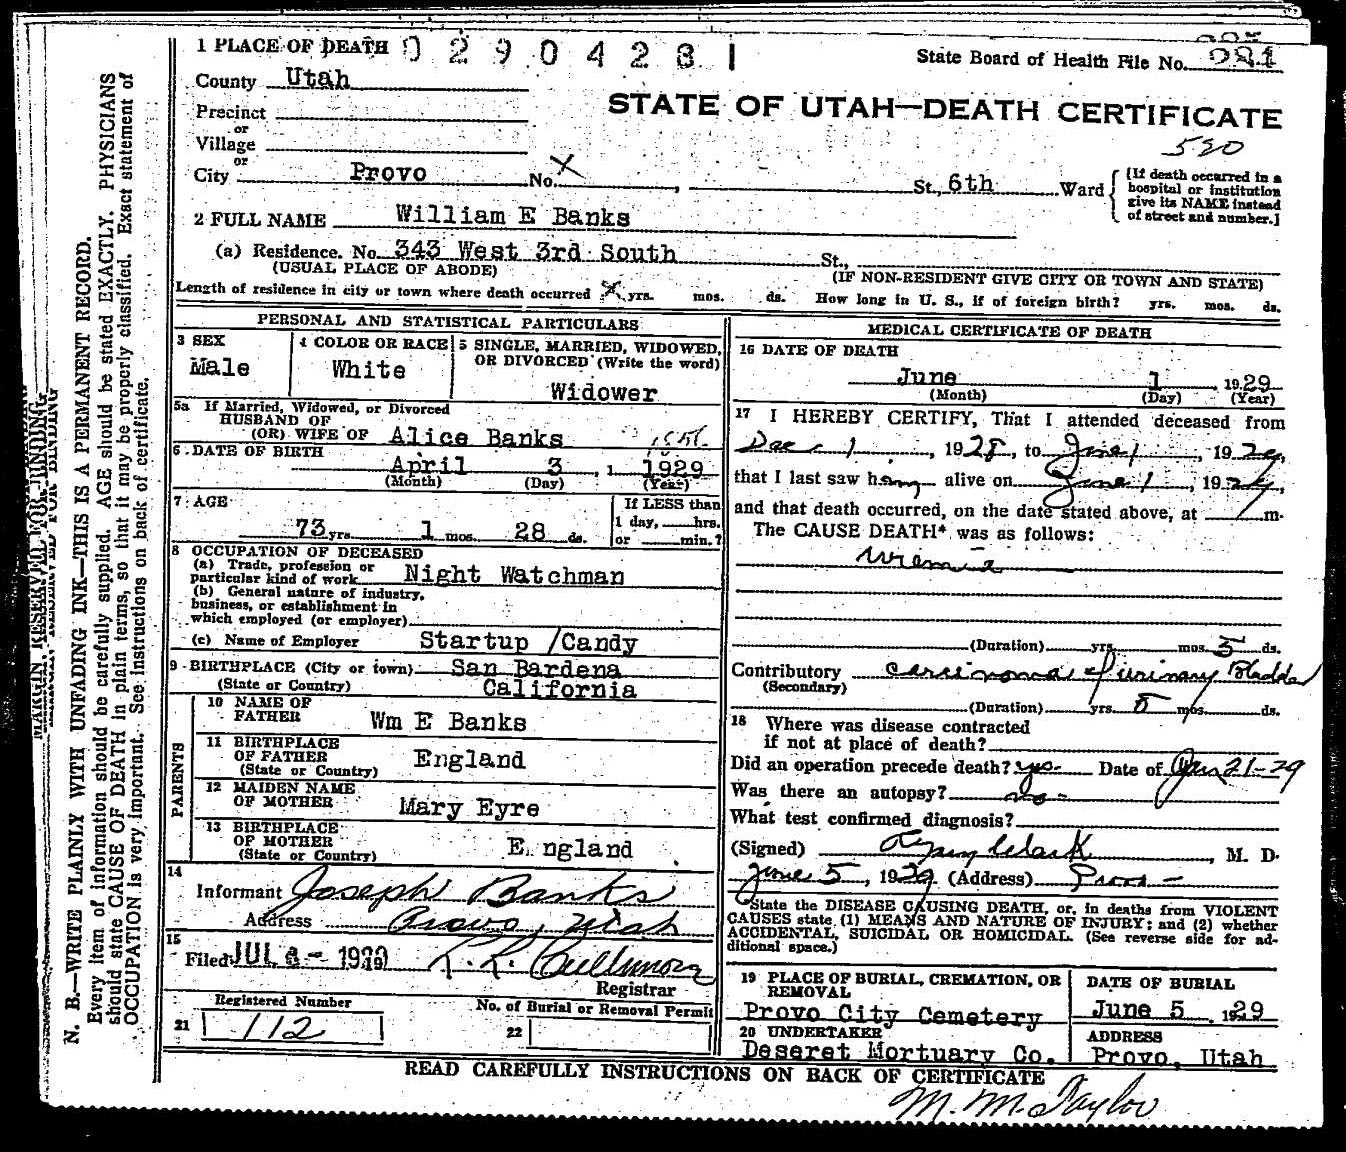 1 PLACE OF DEATH 02904231
State Board of Health File No. 981
County Utah
STATE OF UTAH—DEATH CERTIFICATE
Precinct
or
Village
520
or
City Provo No. X St., 6th Ward
[If death occurred in a hospital or institution give its NAME instead of street and number.]
2 FULL NAME William E Banks
(a) Residence. No. 343 West 3rd South St.,
(USUAL PLACE OF ABODE) (IF NON-RESIDENT GIVE CITY OR TOWN AND STATE)
Length of residence in city or town where death occurred yrs. mos. ds. How long in U. S., if of foreign birth? yrs. mos. ds.
PERSONAL AND STATISTICAL PARTICULARS
3 SEX
Male
4 COLOR OR RACE
White
5 SINGLE, MARRIED, WIDOWED,
OR DIVORCED (Write the word)
Widower
5a If Married, Widowed, or Divorced
HUSBAND OF
(OR) WIFE OF Alice Banks
6 DATE OF BIRTH April 3, 1 1929
(Month) (Day) (Year)
7 AGE
73 yrs. 1 mos. 28 ds.
If LESS than
1 day, hrs.
or min.?
8 OCCUPATION OF DECEASED
(a) Trade, profession or
particular kind of work Night Watchman
(b) General nature of industry,
business, or establishment in
which employed (or employer)
(c) Name of Employer Startup /Candy
9 BIRTHPLACE (City or town) San Bardena
(State or Country) California
PARENTS
10 NAME OF
FATHER Wm E Banks
11 BIRTHPLACE
OF FATHER England
(State or Country)
12 MAIDEN NAME
OF MOTHER Mary Eyre
13 BIRTHPLACE
OF MOTHER England
(State or Country)
14
Informant Joseph Banks
Address Provo, Utah
15
Filed JUL 1929
Registrar
Registered Number
21 112
No. of Burial or Removal Permit
22
MEDICAL CERTIFICATE OF DEATH
16 DATE OF DEATH
June 1, 1929
(Month) (Day) (Year)
17 I HEREBY CERTIFY, That I attended deceased from
Dec 1, 1928, to June 1, 1929,
that I last saw him alive on June 1, 1929,
and that death occurred, on the date stated above, at m.
The CAUSE DEATH* was as follows:
uremia
(Duration) yrs. mos. 5 ds.
Contributory carcinoma of urinary Bladder
(Secondary)
(Duration) yrs. mos. ds.
18 Where was disease contracted
if not at place of death?
Did an operation precede death? yes. Date of Jan 21-29
Was there an autopsy? no-
What test confirmed diagnosis?
(Signed) Clark, M. D.
June 5, 1929 (Address) Provo -
State the DISEASE CAUSING DEATH, or, in deaths from VIOLENT
CAUSES state (1) MEANS AND NATURE OF INJURY; and (2) whether
ACCIDENTAL, SUICIDAL OR HOMICIDAL. (See reverse side for ad-
ditional space.)
19 PLACE OF BURIAL, CREMATION, OR
REMOVAL
Provo City Cemetery
DATE OF BURIAL
June 5, 1929
20 UNDERTAKER
Deseret Mortuary Co.
ADDRESS
Provo, Utah
READ CAREFULLY INSTRUCTIONS ON BACK OF CERTIFICATE
M. M. Taylor
MARGIN RESERVED FOR BINDING
N. B.—WRITE PLAINLY WITH UNFADING INK—THIS IS A PERMANENT RECORD.
Every item of information should be carefully supplied. AGE should be stated EXACTLY. PHYSICIANS
should state CAUSE OF DEATH in plain terms, so that it may be properly classified. Exact statement of
OCCUPATION is very important. See instructions on back of certificate.